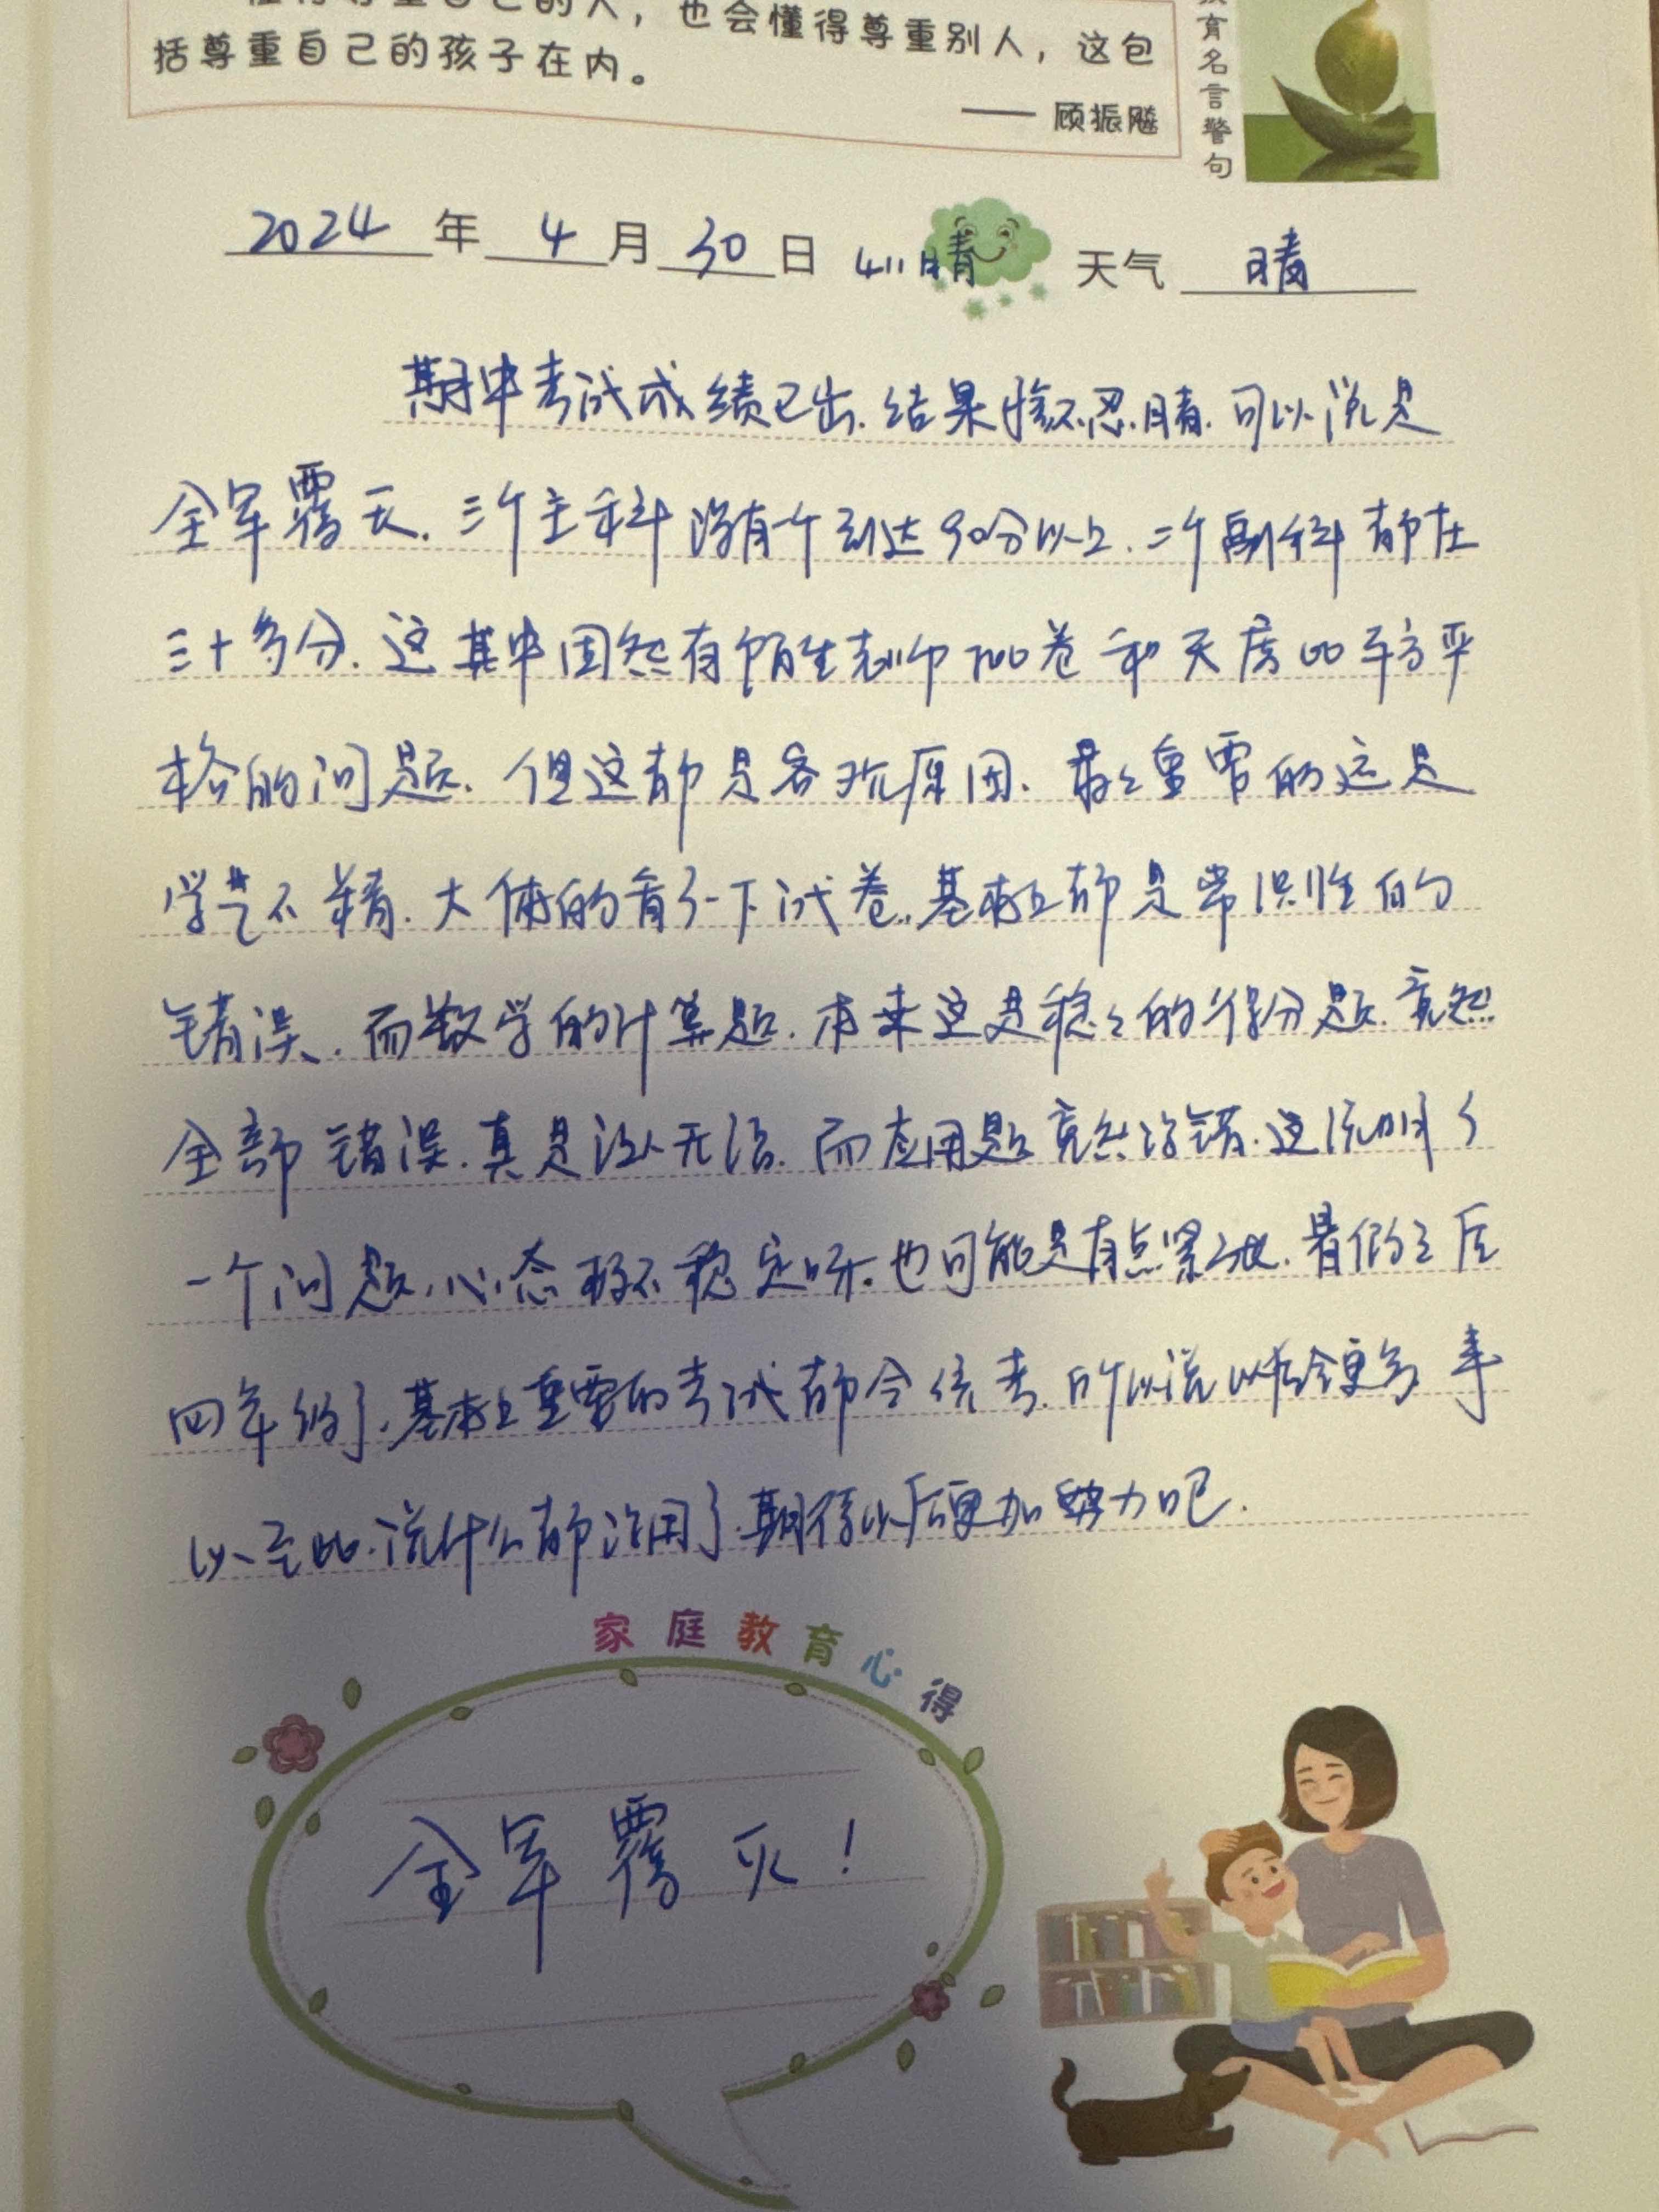 的人，也会懂得尊重别人，这包
括尊重自己的孩子在内。
—— 顾振飚
育名言警句
2024 年 4 月 30 日 晴 天气 晴
期中考试成绩已出.结果惨不忍睛.可以说是
全军覆灭.三个主科没有一个到达90分以上.二个副科都在
三十多分.这其中固然有陌生老师 卷和天 平
格的问题.但这都是客观原因.最重要的这是
学艺不精.大体的看了一下试卷.基本上都是常识性的
错误.而数学的计算题.本来这是稳稳的得分题.竟然
全部错误.真是让人无语.而应用题竟然没错.这说明了
一个问题.心态极不稳定呀.也可能是有点紧张.暑假之后
四年级了.基本上重要的考试都会统考.所以说以后会更多 事
以至此.说什么都没用了.期待以后更加努力吧.
家庭教育心得
全军覆灭！